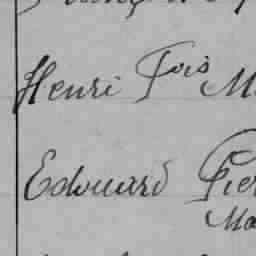 Henri Fois M
Edouard Pier
Ma